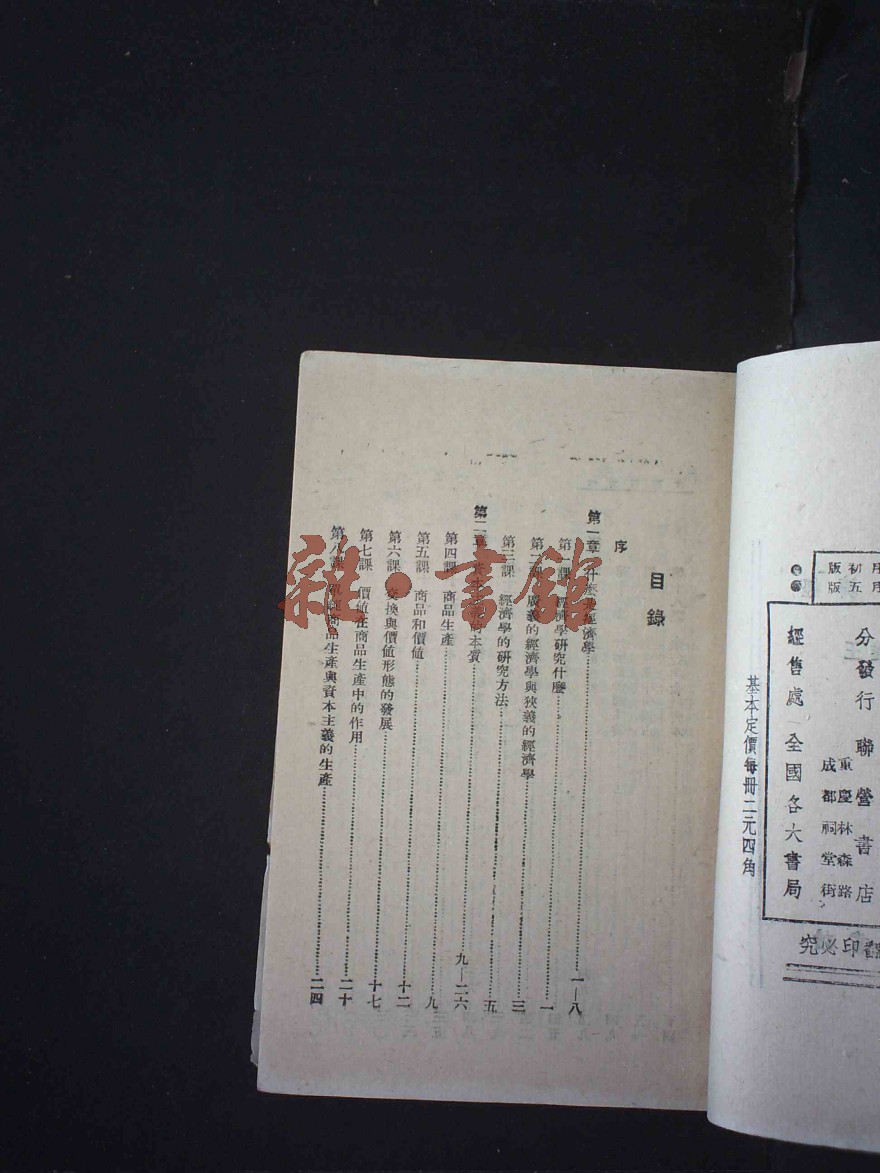 初版
五版
分發行聯營書店
重慶林森路
成都祠堂街
經售處 全國各大書局
印必究
基本定價每冊二元四角
目錄
序
第一章 什麼是經濟學……一—八
第一課 經濟學研究什麼……一
第二課 廣義的經濟學與狹義的經濟學……三
第三課 經濟學的研究方法……五
第二章 資本的本質……九—二六
第四課 商品生產……九
第五課 商品和價值……十二
第六課 交換與價值形態的發展……十七
第七課 價值在商品生產中的作用……二十
第八課 商品生產與資本主義的生產……二四
雜·書館